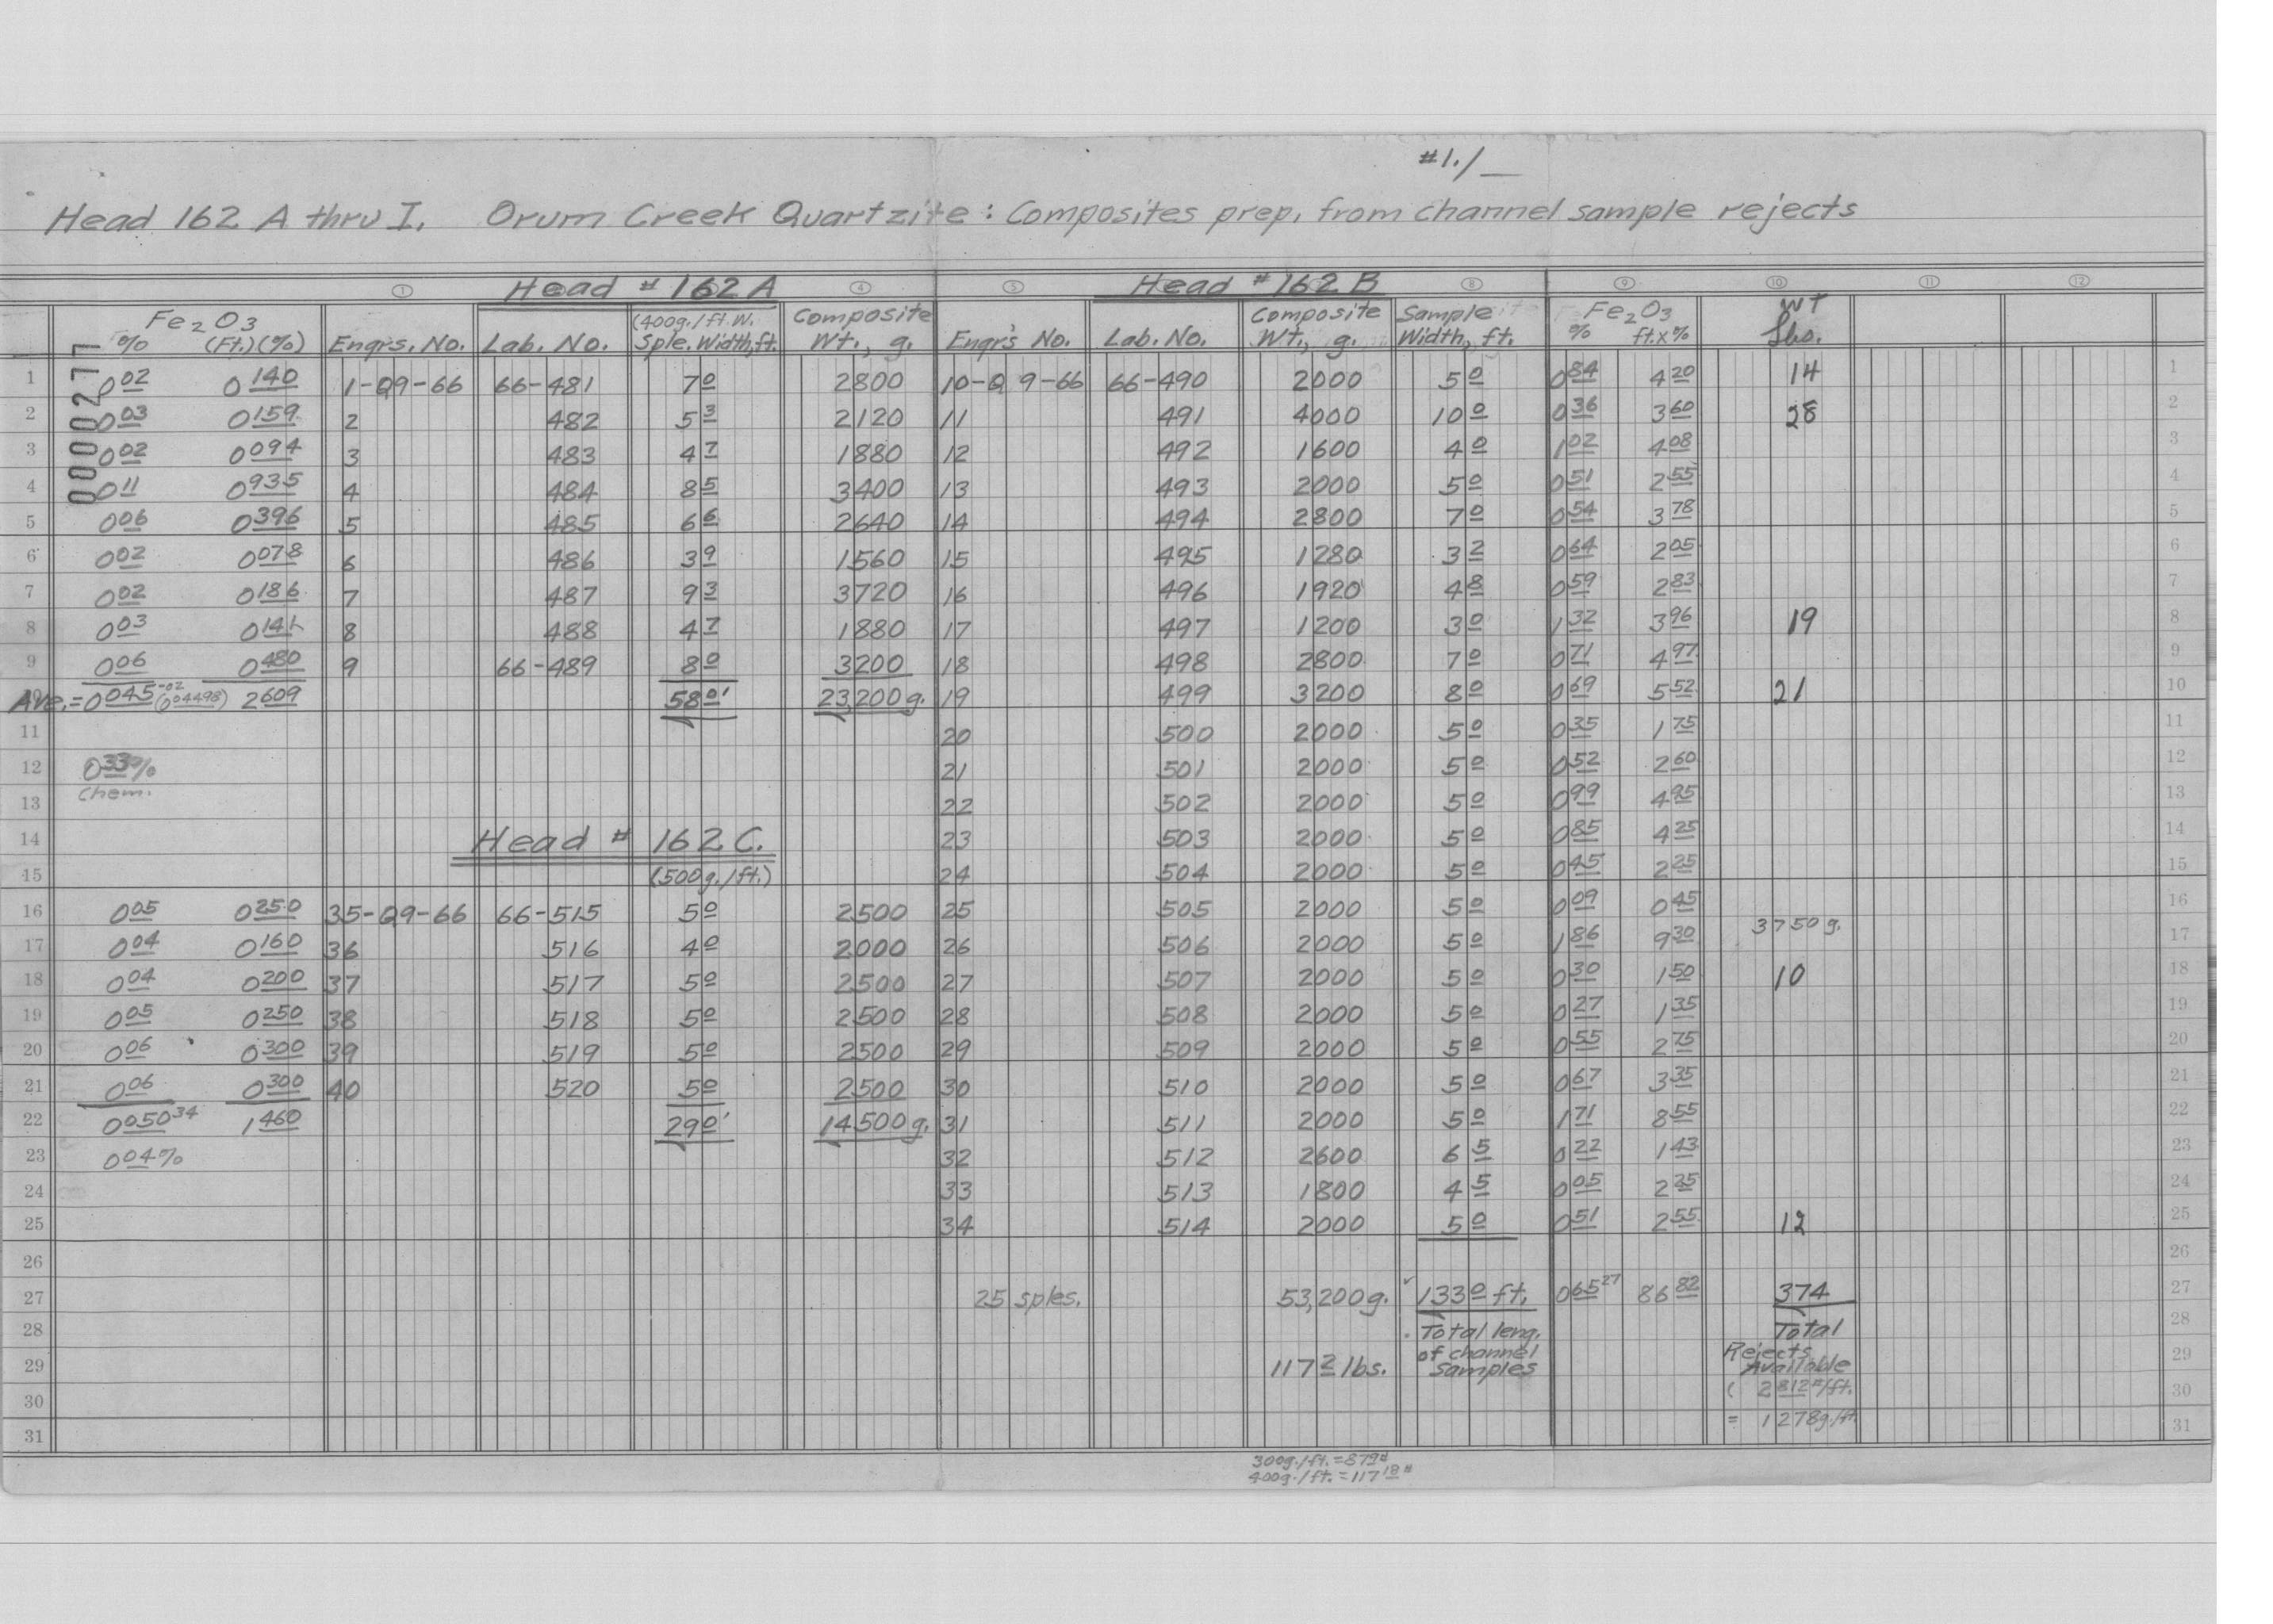 #1./
Head 162 A thru I. Orum Creek Quartzite : Composites prep. from channel sample rejects
Head # 162 A Head # 162 B
1 4 5 8 9 10 11 12
Fe2O3 (400g./ft. W. Composite Composite Sample Fe2O3 WT
% (Ft.)(%) Engrs. No. Lab. No. Sple. Width, ft. Wt., g. Engr's No. Lab. No. Wt., g. Width, ft. % ft.x% Lbs.
0000277
1 0 02 0 140 1-Q9-66 66-481 7 0 2800 10-Q9-66 66-490 2000 5 0 0 84 4 20 14 1
2 0 03 0 159 2 482 5 3 2120 11 491 4000 10 0 0 36 3 60 28 2
3 0 02 0 094 3 483 4 7 1880 12 492 1600 4 0 1 02 4 08 3
4 0 11 0 935 4 484 8 5 3400 13 493 2000 5 0 0 51 2 55 4
5 0 06 0 396 5 485 6 6 2640 14 494 2800 7 0 0 54 3 78 5
6 0 02 0 078 6 486 3 9 1560 15 495 1280 3 2 0 64 2 05 6
7 0 02 0 186 7 487 9 3 3720 16 496 1920 4 8 0 59 2 83 7
8 0 03 0 141 8 488 4 7 1880 17 497 1200 3 0 1 32 3 96 19 8
9 0 06 0 480 9 66-489 8 0 3200 18 498 2800 7 0 0 71 4 97 9
Ave.= 0 045 -02 (0 04498) 2 609 58 0' 23,200 g. 19 499 3200 8 0 0 69 5 52 21 10
11 20 500 2000 5 0 0 35 1 75 11
12 0 33% 21 501 2000 5 0 0 52 2 60 12
Chem.
13 22 502 2000 5 0 0 99 4 95 13
14 Head # 162 C. 23 503 2000 5 0 0 85 4 25 14
15 (500g./ft.) 24 504 2000 5 0 0 45 2 25 15
16 0 05 0 250 35-Q9-66 66-515 5 0 2500 25 505 2000 5 0 0 09 0 45 16
3750 g.
17 0 04 0 160 36 516 4 0 2000 26 506 2000 5 0 1 86 9 30 17
18 0 04 0 200 37 517 5 0 2500 27 507 2000 5 0 0 30 1 50 10 18
19 0 05 0 250 38 518 5 0 2500 28 508 2000 5 0 0 27 1 35 19
20 0 06 0 300 39 519 5 0 2500 29 509 2000 5 0 0 55 2 75 20
21 0 06 0 300 40 520 5 0 2500 30 510 2000 5 0 0 67 3 35 21
22 0 050 34 1 460 29 0' 14500 g. 31 511 2000 5 0 1 71 8 55 22
23 0 04% 32 512 2600 6 5 0 22 1 43 23
24 33 513 1800 4 5 0 05 2 25 24
25 34 514 2000 5 0 0 51 2 55 12 25
26 26
27 25 sples. 53,200 g. 133 0 ft. 0 65 27 86 82 374 27
28 Total leng. Total 28
29 117 2 lbs. of channel Rejects 29
Samples Available
30 ( 2 812 #/ft. 30
31 = 1278g./ft. 31
300g./ft. = 87 9 #
400g./ft. = 117 18 #